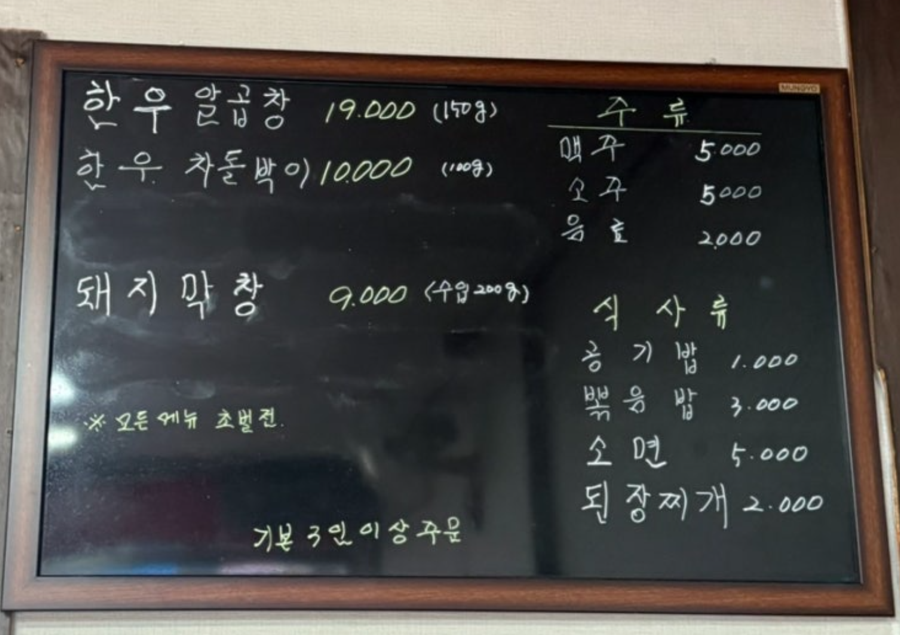 MUNGYO
한우 알곱창 19.000 (150g)
한우 차돌박이 10.000 (100g)
돼지막창 9.000 (수입 200g)
※ 모든메뉴 초벌전.
기본 3인이상주문
주류
맥주 5.000
소주 5000
음료 2.000
식사류
공기밥 1.000
뽂음밥 3.000
소면 5.000
된장찌개 2.000